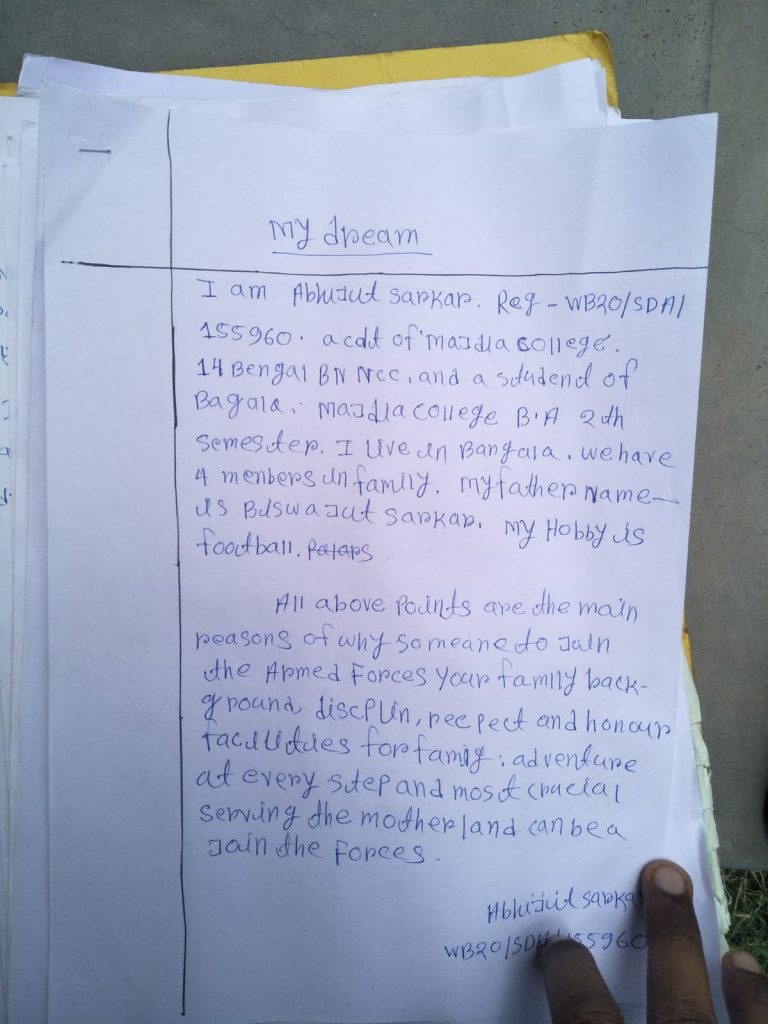 My dream
I am Abhijit Sarkar. Reg - WB20/SDA/
155960. a cdt of Majdia College.
14 Bengal BN NCC, and a studend of
Bagala. Majdia College B.A 2th
semester. I live in Bangala. we have
4 menbers in family. my father name
is Biswajit Sarkar. my Hobby is
football.
All above Points are the main
reasons of why someane to Jain
the Armed Forces your family back-
ground, discplin, recpect and honour
facilities for famiy: adventure
at every step and most crucial
serving the motherland can be a
Jain the Forces.
Abhijit Sarka
WB20/SDA/155960